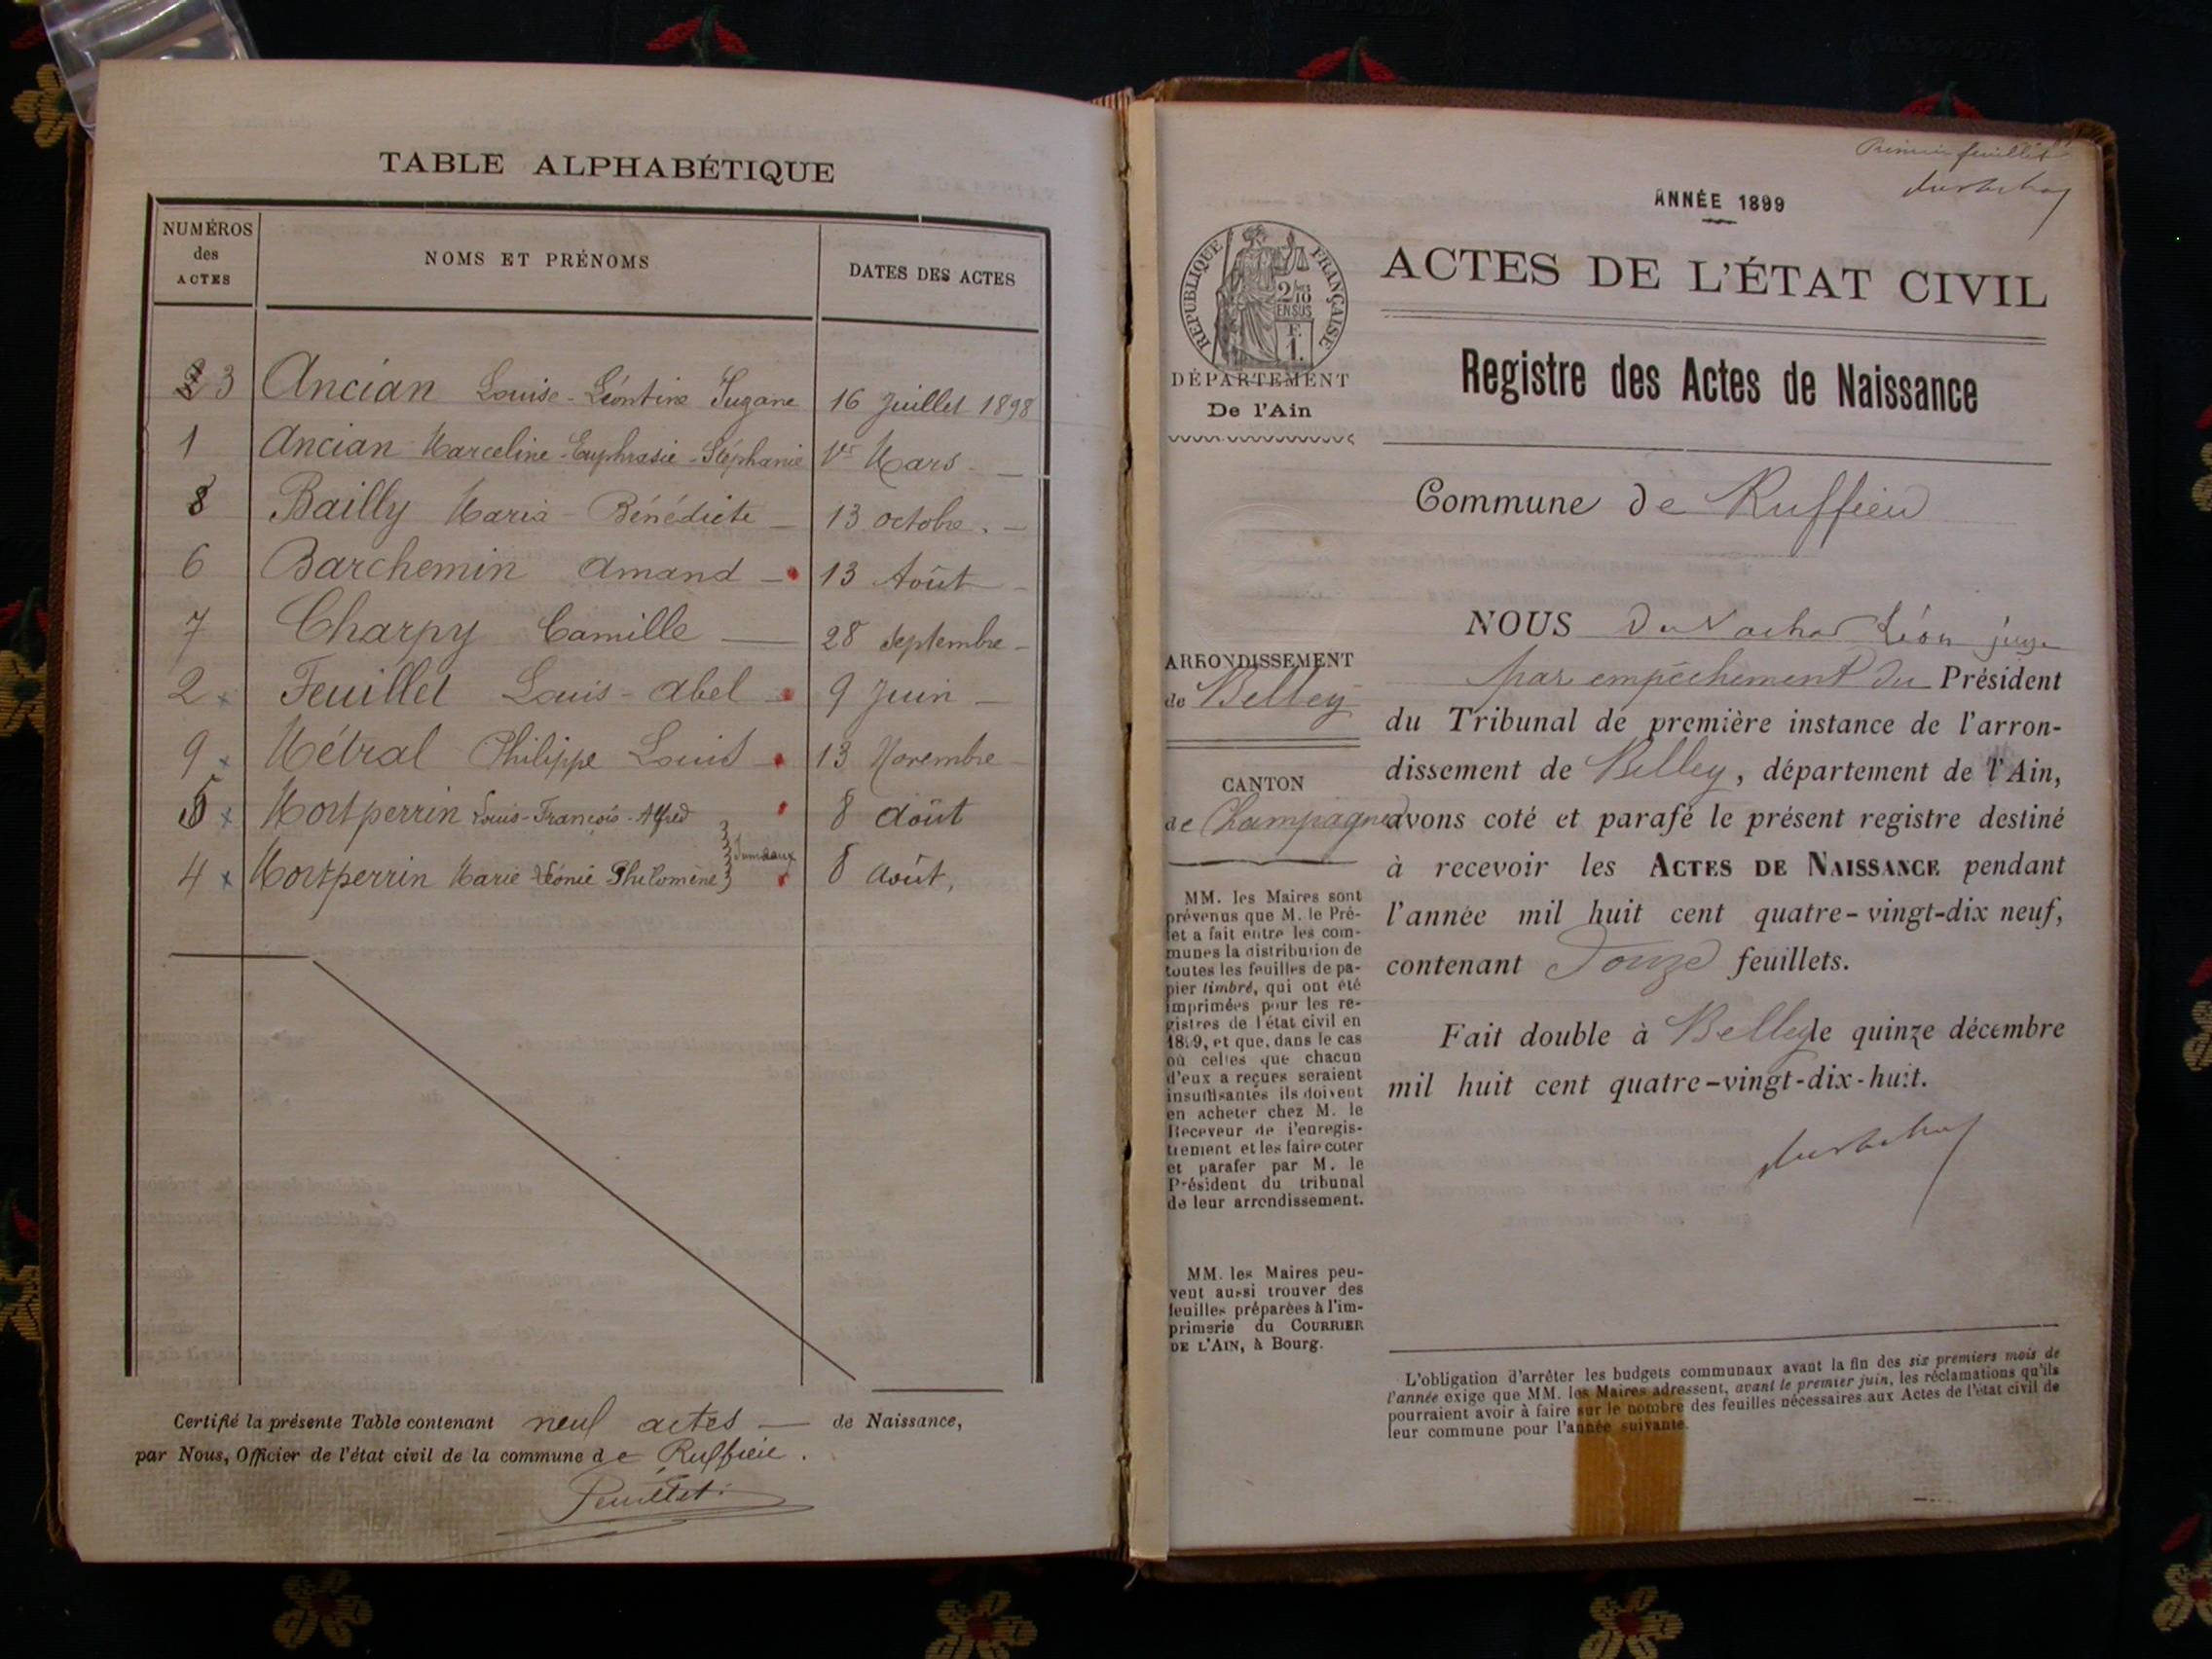 TABLE ALPHABÉTIQUE
NUMÉROS des ACTES
NOMS ET PRÉNOMS
DATES DES ACTES
3 Ancian Louise-Léontine Sugane 16 Juillet 1898
1 Ancian Marceline-Euphrasie-Stéphanie 1er Mars
8 Bailly Maria-Bénédicte 13 octobre
6 Barchemin Amand 13 Août
7 Charpy Camille 28 Septembre
2 x Feuillet Louis-Abel 9 Juin
9 x Métral Philippe Louis 13 Novembre
5 x Montperrin Louis-François-Alfred 8 Août
Jumeaux
4 x Montperrin Marie Léonie Philomène 8 Août,
Certifié la présente Table contenant neuf actes de Naissance,
par Nous, Officier de l'état civil de la commune de Ruffieu.
Feuillet
Premier feuillet
ANNÉE 1899
ACTES DE L'ÉTAT CIVIL
Registre des Actes de Naissance
RÉPUBLIQUE FRANÇAISE
2/10 EN SUS
F. 1.
DÉPARTEMENT
De l'Ain
Commune de Ruffieu
ARRONDISSEMENT
de Belley
CANTON
de Champagne
MM. les Maires sont
prévenus que M. le Pré-
fet a fait entre les com-
munes la distribution de
toutes les feuilles de pa-
pier timbré, qui ont été
imprimées pour les re-
gistres de l'état civil en
1899, et que, dans le cas
où celles que chacun
d'eux a reçues seraient
insuffisantes ils doivent
en acheter chez M. le
Receveur de l'enregis-
trement et les faire coter
et parafer par M. le
Président du tribunal
de leur arrondissement.
MM. les Maires peu-
vent aussi trouver des
feuilles préparées à l'im-
primerie du COURRIER
DE L'AIN, à Bourg.
NOUS Léon juge
par empêchement du Président
du Tribunal de première instance de l'arron-
dissement de Belley, département de l'Ain,
avons coté et parafé le présent registre destiné
à recevoir les ACTES DE NAISSANCE pendant
l'année mil huit cent quatre-vingt-dix neuf,
contenant feuillets.
Fait double à Belley le quinze décembre
mil huit cent quatre-vingt-dix-huit.
L'obligation d'arrêter les budgets communaux avant la fin des six premiers mois de
l'année exige que MM. les Maires adressent, avant le premier juin, les réclamations qu'ils
pourraient avoir à faire sur le nombre des feuilles nécessaires aux Actes de l'état civil de
leur commune pour l'année suivante.